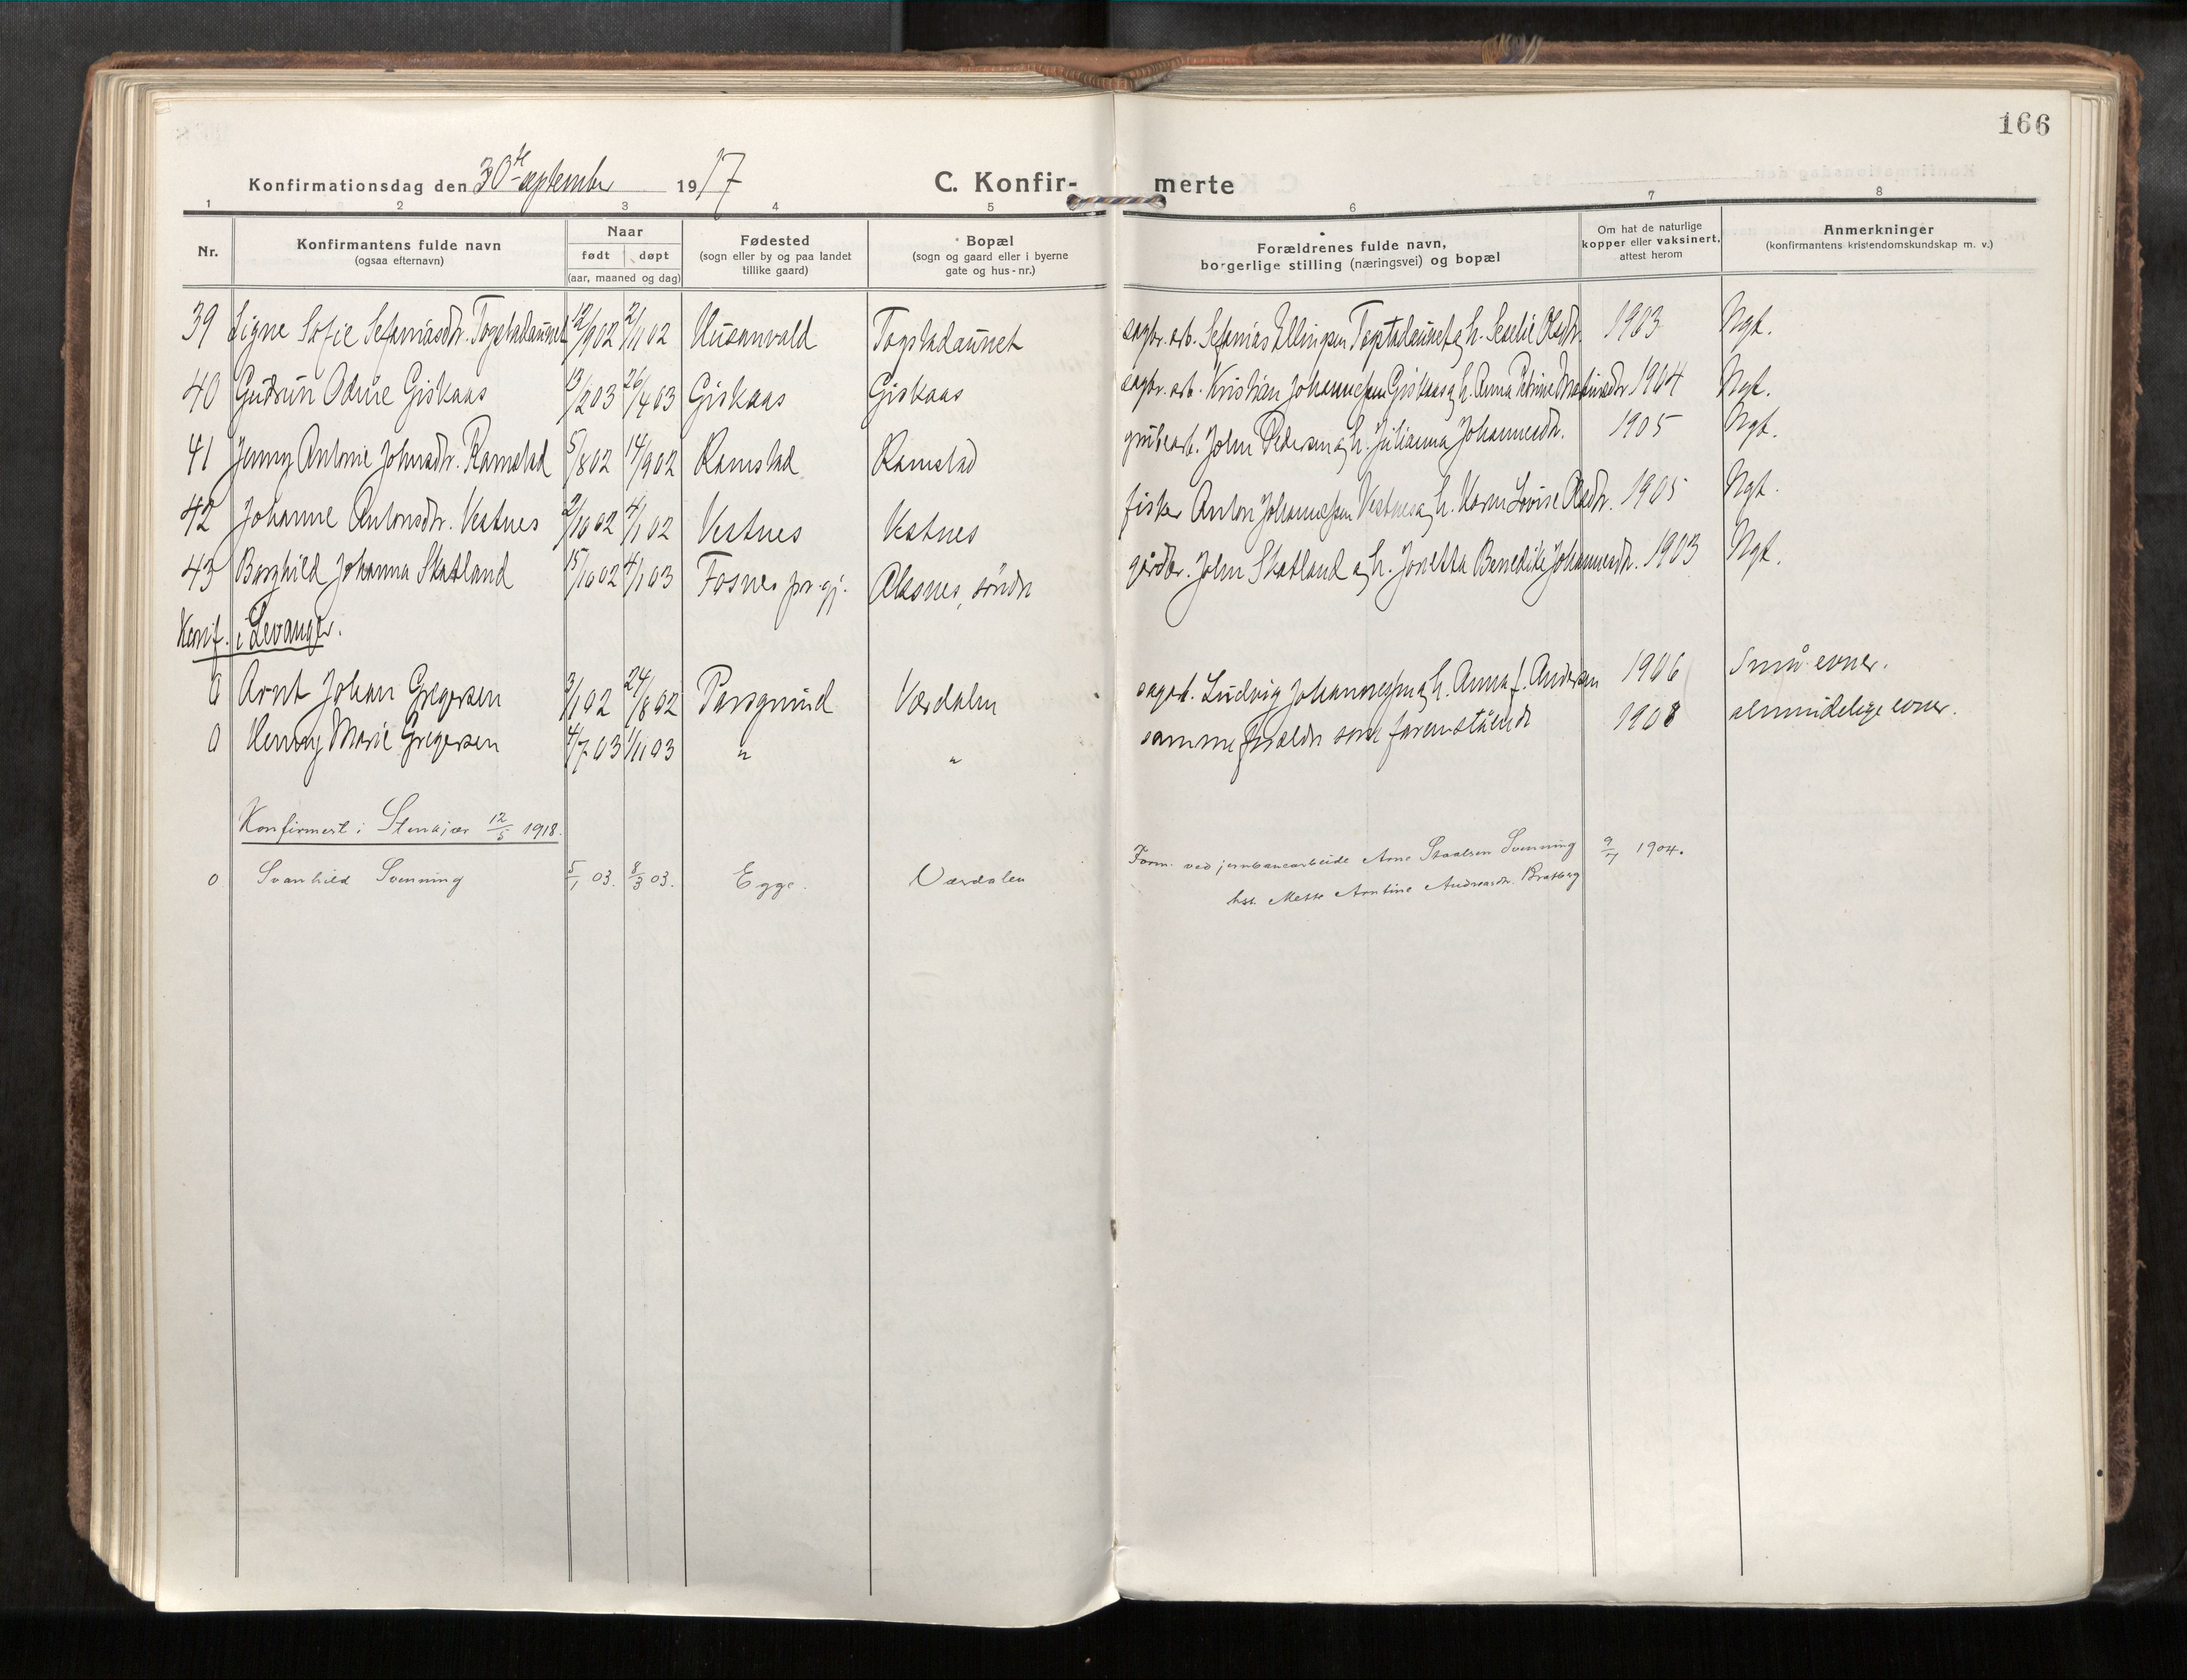 166
Konfirmationsdag den 30te september 1917 C. Konfir- merte
1 2 3 4 5 6 7 8
Nr. Konfirmantens fulde navn (ogsaa efternavn) Naar født døpt (aar, maaned og dag) Fødested (sogn eller by og paa landet tillike gaard) Bopæl (sogn og gaard eller i byerne gate og hus-nr.) Forældrenes fulde navn, borgerlige stilling (næringsvei) og bopæl Om hat de naturlige kopper eller vaksinert, attest herom Anmerkninger (konfirmantens kristendomskundskap m. v.)
39 Signe Sofie Sefaniasdtr. Togstadaunet 12/9 02 2/11 02 Togstadaunet sagbr. arb. Sefanias Ellingsen Togstadaunet og h. Olsdtr. 1903 Ngt.
40 Gudrun Giskaas 13/2 03 26/4 03 Giskaas Giskaas sagbr. arb. Kristian Johannessen Giskaas og h. Anna Petrine 1904 Ngt.
41 Jenny Antonie Johnsdtr. Ramstad 5/8 02 14/9 02 Ramstad Ramstad grubearb. John Pedersen og h. Julianna Johannesdtr. 1905 Ngt.
42 Johanne Antonsdtr. Vestnes 2/10 02 4/1 02 Vestnes Vestnes fisker Anton Johannessen Vestnes og h. Karen Lovise Olsdtr. 1905 Ngt.
43 Borghild Johanna Skatland 15/10 02 4/1 03 Fosnes pr.gj. søndr gårdbr. John Skatland og h. Jonetta Benedikte Johannesdtr. 1903 Ngt.
Konf. i Levanger.
0 Arnt Johan Gregersen 3/1 02 24/8 02 Parsgrund Værdalen sagarb. Ludvig Johannessen og h. Anna f. Andersen 1906 Små evner.
0 Henny Marie Gregersen 4/7 03 1/11 03 " " samme forældr som foranstående 1908 almindelige evner.
Konfirmert i Stenkjær 12/5 1918.
0 Svanhild Svenning 5/1 03. 8/3 03. Egge. Værdalen Form. ved jernbanearbeide Arne Svenning 9/7 1904.
hst. Mette Arntine Andreasdtr. Bratberg